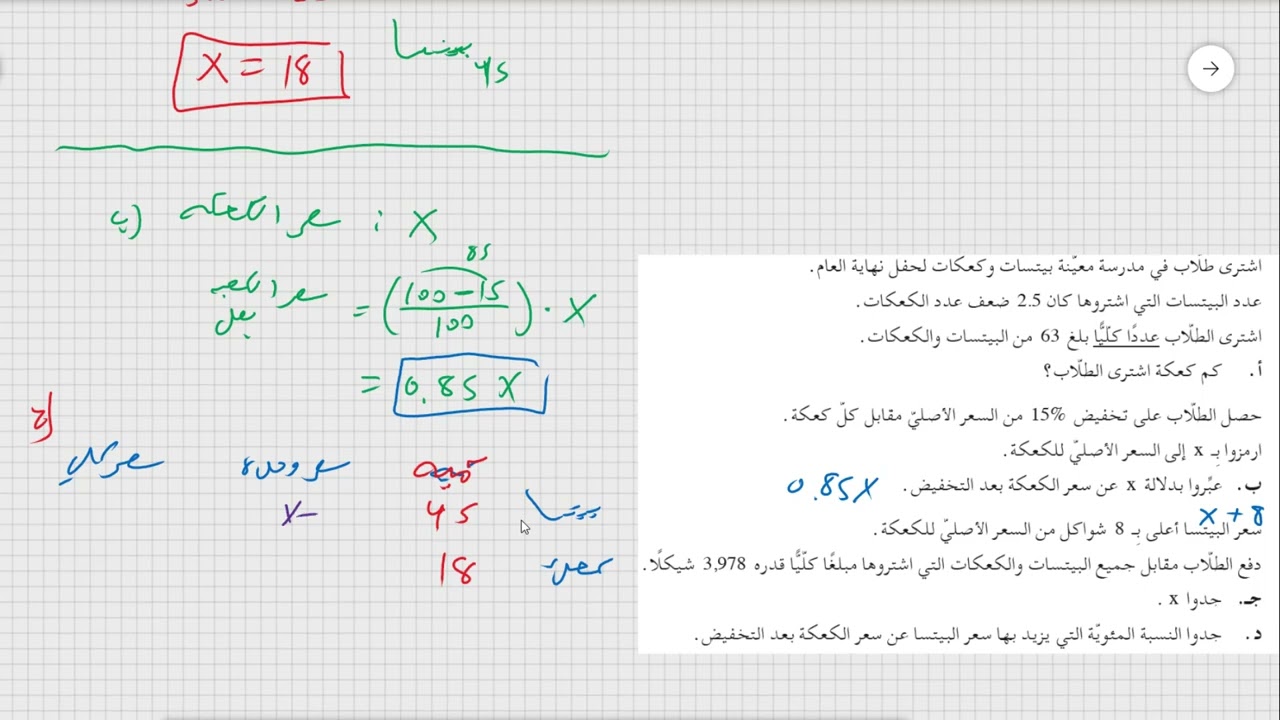 X = 18
بيتسا 45
ب) سعر الكعكة : X
85
سعر الكعكة بعد = (100 - 15 / 100) · X
= 0.85 X
ج)
كمية سعر وحدة سعر كلي
بيتسا 45 X
كعك 18
اشترى طلّاب في مدرسة معيّنة بيتسات وكعكات لحفل نهاية العام.
عدد البيتسات التي اشتروها كان 2.5 ضعف عدد الكعكات.
اشترى الطلّاب عددًا كلّيًّا بلغ 63 من البيتسات والكعكات.
أ. كم كعكة اشترى الطلّاب؟
حصل الطلّاب على تخفيض 15% من السعر الأصليّ مقابل كلّ كعكة.
ارمزوا بـ x إلى السعر الأصليّ للكعكة.
ب. عبّروا بدلالة x عن سعر الكعكة بعد التخفيض. 0.85X
X + 8
سعر البيتسا أعلى بـ 8 شواكل من السعر الأصليّ للكعكة.
دفع الطلّاب مقابل جميع البيتسات والكعكات التي اشتروها مبلغًا كلّيًّا قدره 3,978 شيكلًا.
جـ. جدوا x .
د. جدوا النسبة المئويّة التي يزيد بها سعر البيتسا عن سعر الكعكة بعد التخفيض.